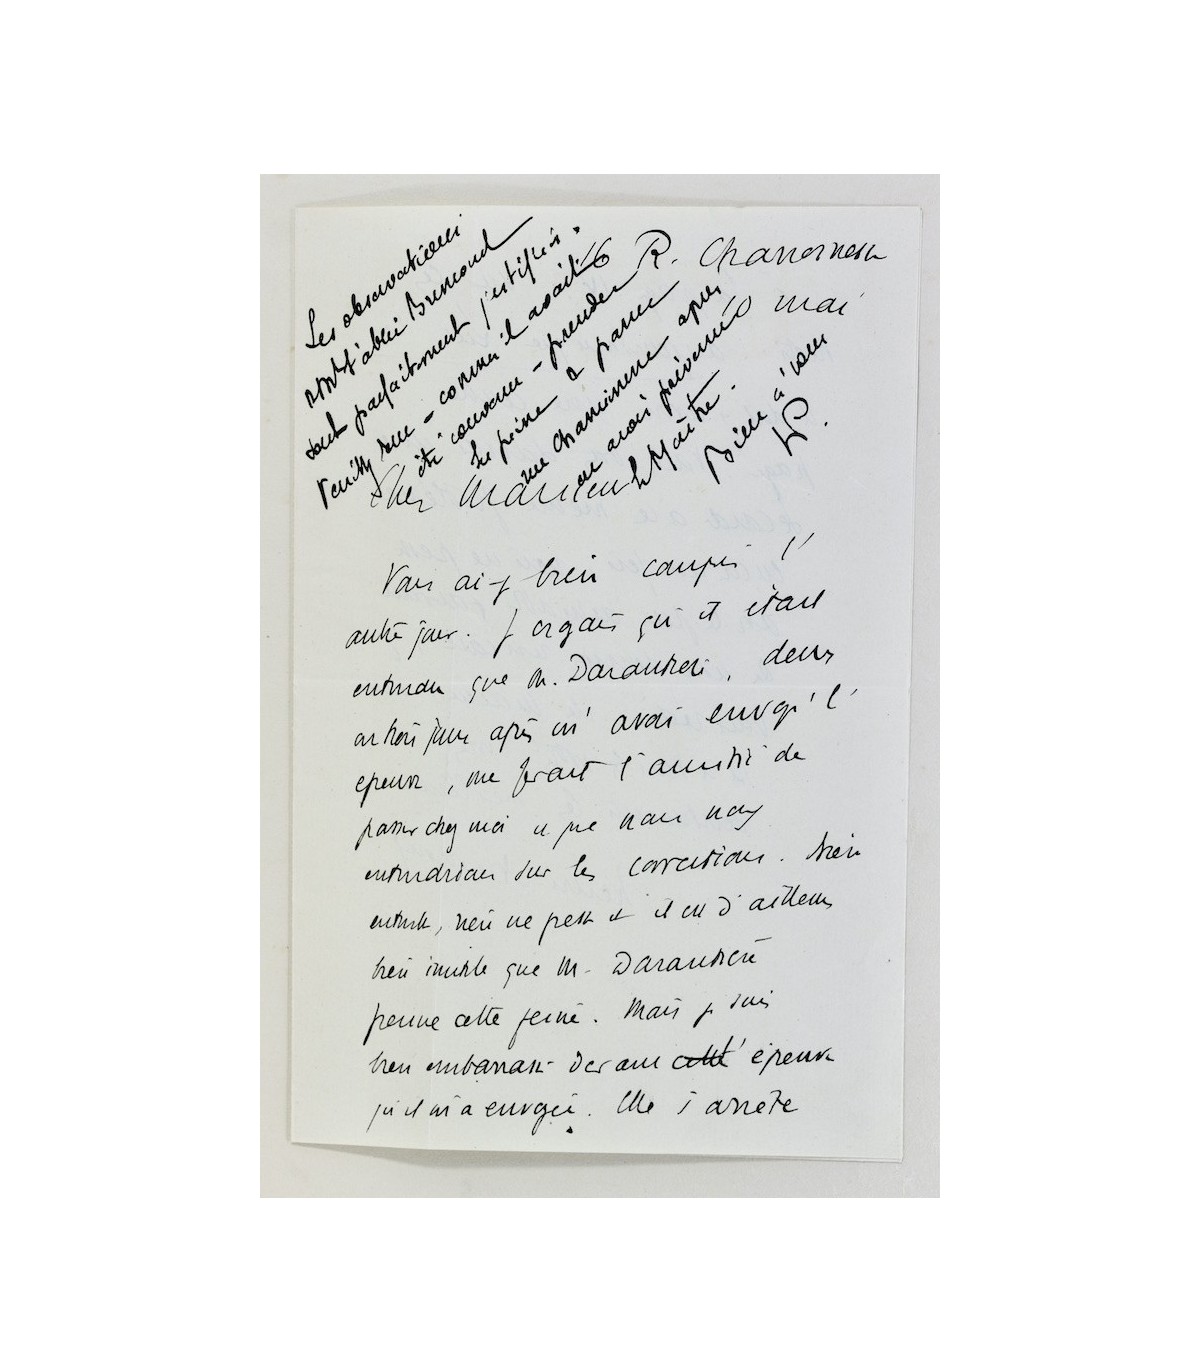 Les observations
de M. l'abbé Bremond
sont parfaitement justifiées.
Veuillez donc – comme il avait
été convenu – prendre
la peine de passer
rue Chanoinesse après
en avoir prévenu
le Maître.
Bien à vous
16 R. Chanoinesse
10 mai
Cher Monsieur
Vous ai-je bien compris l'
autre jour. Je croyais qu'il était
entendu que M. Darantiere, deux
ou trois jours après m'avoir envoyé l'
épreuve, me ferait l'amitié de
passer chez moi et que nous nous
entendrions sur les corrections. Bien
entendu, rien ne presse et il est d'ailleurs
bien inutile que M. Darantiere
prenne cette peine. Mais je suis
bien embarrassé devant cette épreuve
qu'il m'a envoyée. Elle s'arrête